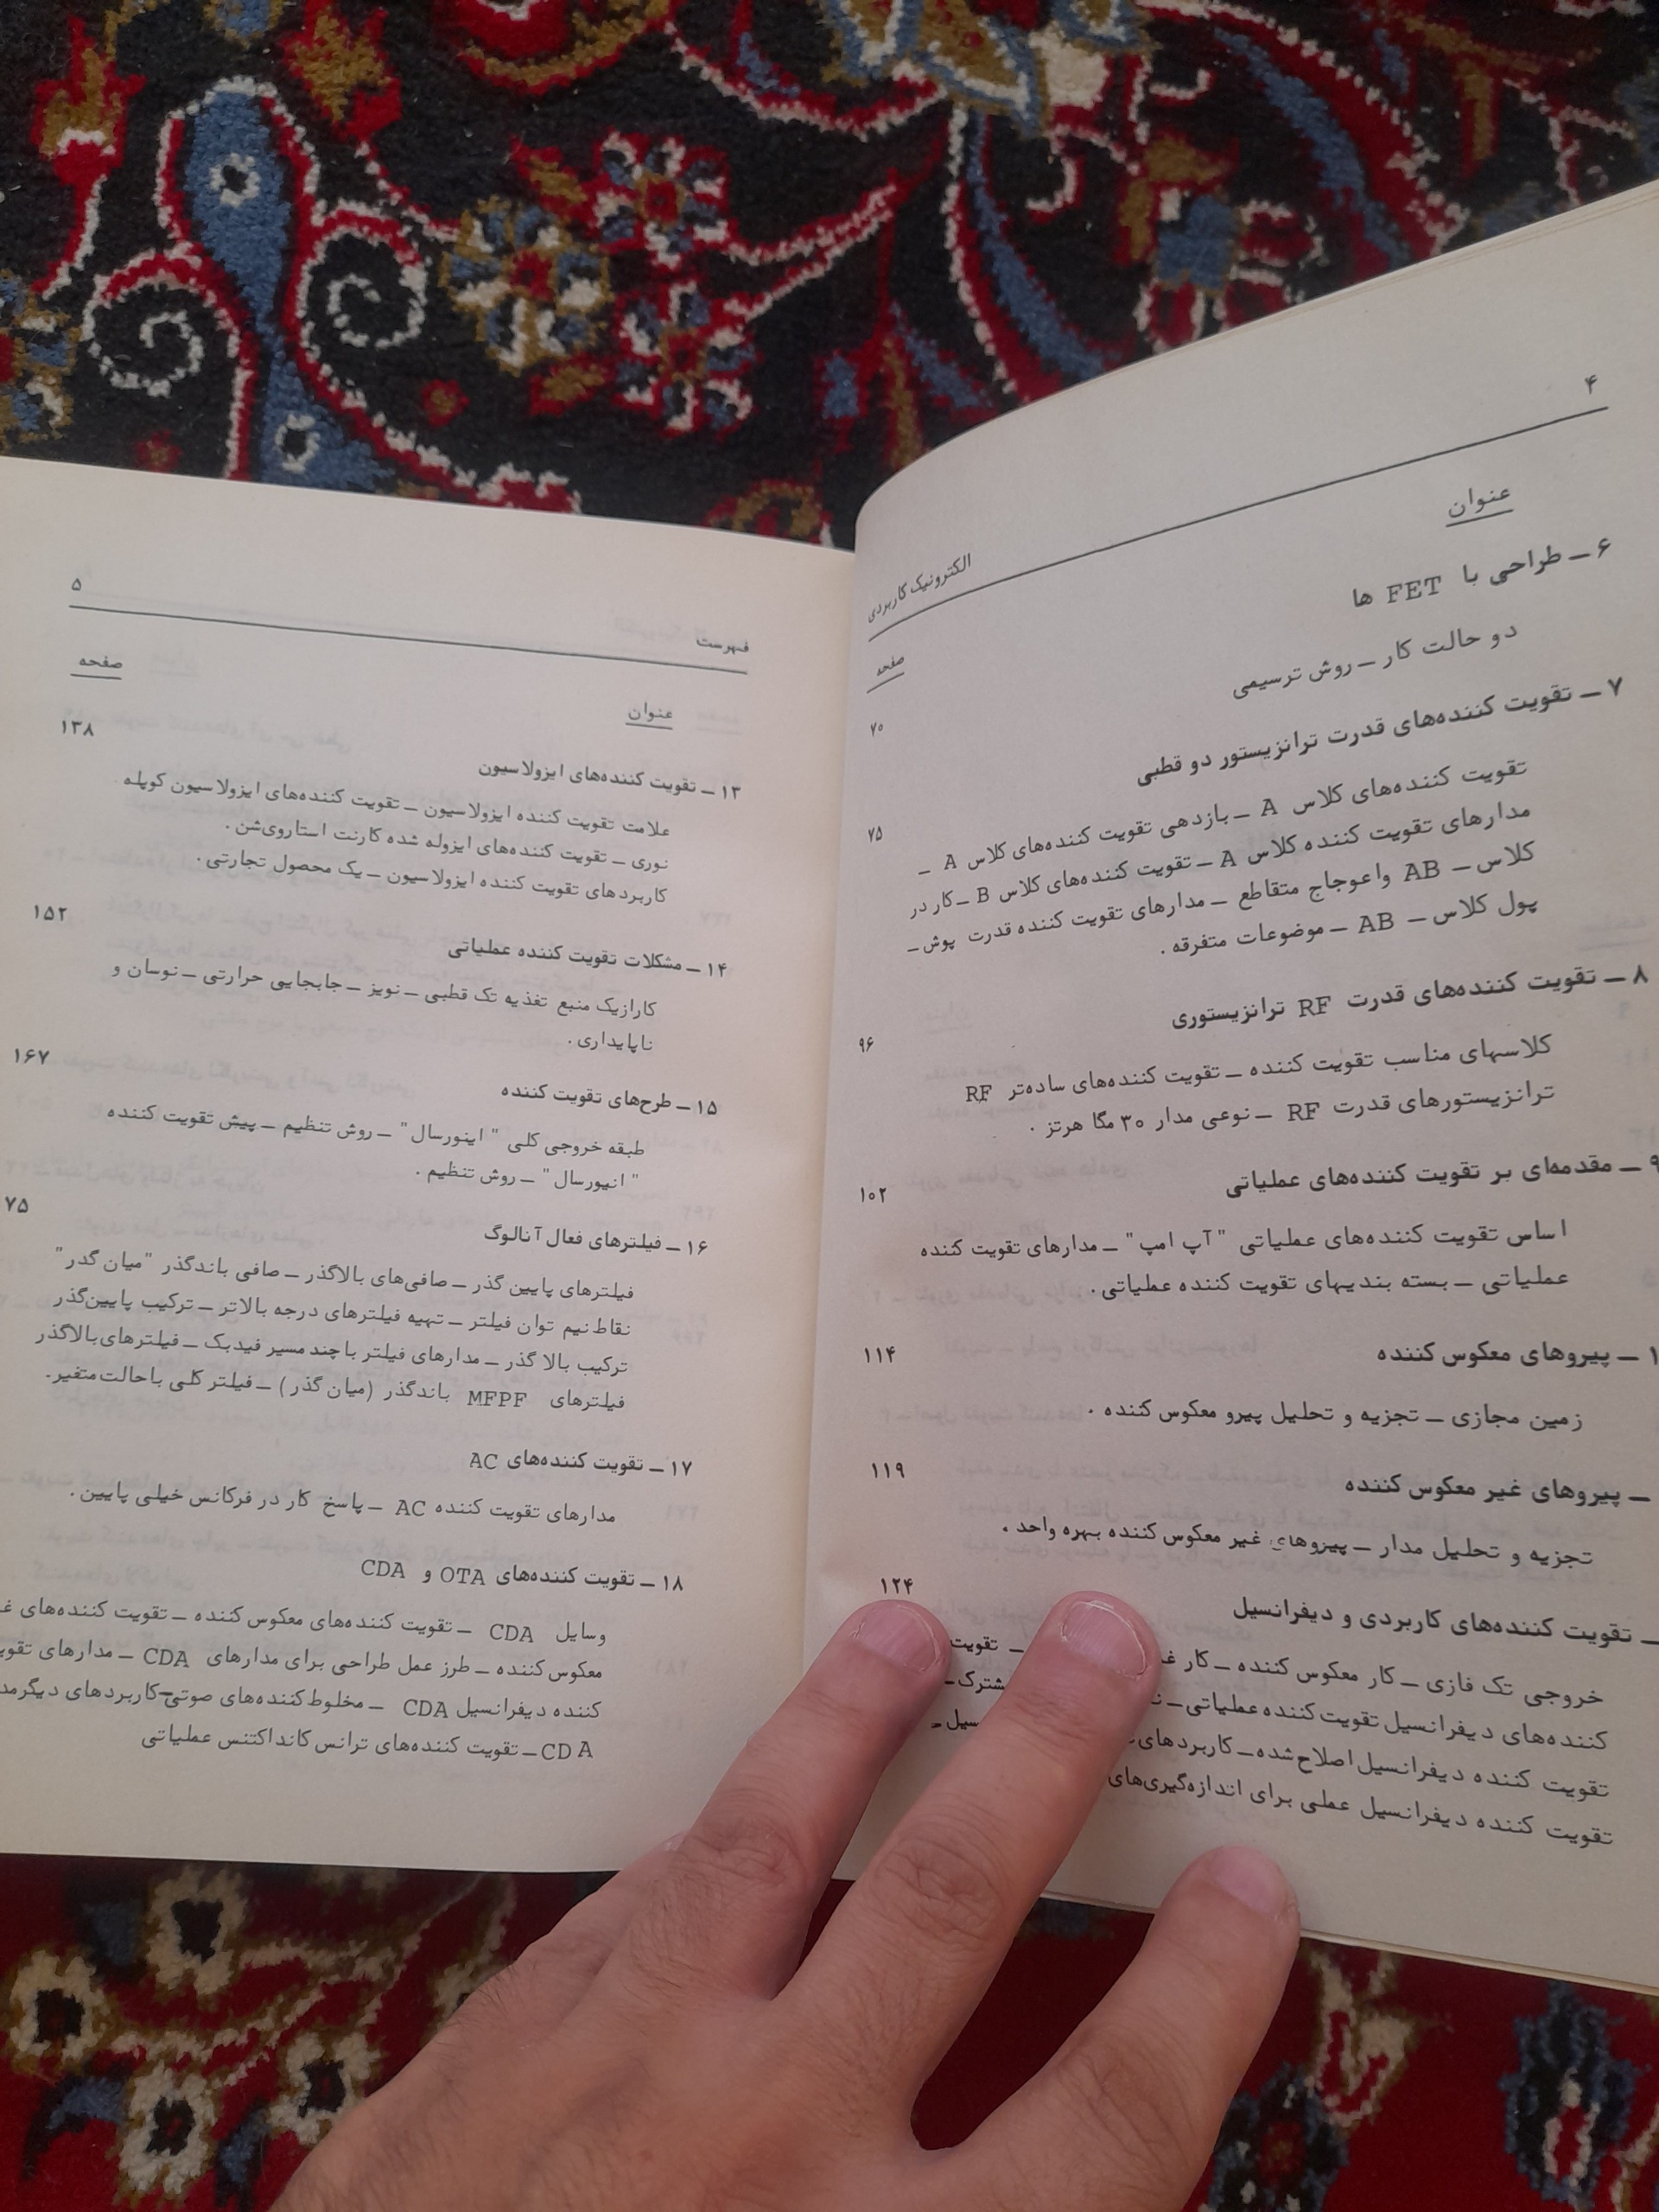 ۴
الکترونیک کاربردی
عنوان
صفحه
۶ ــ طراحی با FET ها
۷۰
دو حالت کار ــ روش ترسیمی
۷ ــ تقویت کننده‌های قدرت ترانزیستور دو قطبی
۷۵
تقویت کننده‌های کلاس A ــ بازدهی تقویت کننده‌های کلاس A ــ
مدارهای تقویت کننده کلاس A ــ تقویت کننده‌های کلاس B ــ کار در
کلاس ــ AB واعوجاج متقاطع ــ مدارهای تقویت کننده قدرت پوش ــ
پول کلاس ــ AB ــ موضوعات متفرقه .
۸ ــ تقویت کننده‌های قدرت RF ترانزیستوری
۹۶
کلاسهای مناسب تقویت کننده ــ تقویت کننده‌های ساده‌تر RF
ترانزیستورهای قدرت RF ــ نوعی مدار ۳۰ مگا هرتز .
۹ ــ مقدمه‌ای بر تقویت کننده‌های عملیاتی
۱۰۲
اساس تقویت کننده‌های عملیاتی "آپ امپ" ــ مدارهای تقویت کننده
عملیاتی ــ بسته بندیهای تقویت کننده عملیاتی .
۱ ــ پیروهای معکوس کننده
۱۱۴
زمین مجازی ــ تجزیه و تحلیل پیرو معکوس کننده .
ــ پیروهای غیر معکوس کننده
۱۱۹
تجزیه و تحلیل مدار ــ پیروهای غیر معکوس کننده بهره واحد .
ــ تقویت کننده‌های کاربردی و دیفرانسیل
۱۲۴
خروجی تک فازی ــ کار معکوس کننده ــ کار ــ تقویت
کننده‌های دیفرانسیل تقویت کننده عملیاتی ــ
تقویت کننده دیفرانسیل اصلاح شده ــ کاربردهای
تقویت کننده دیفرانسیل عملی برای اندازه‌گیری‌های
۵
فهرست
عنوان
صفحه
۱۳ ــ تقویت کننده‌های ایزولاسیون
۱۳۸
علامت تقویت کننده ایزولاسیون ــ تقویت کننده‌های ایزولاسیون کوپله
نوری ــ تقویت کننده‌های ایزوله شده کارنت استاروی‌شن .
کاربردهای تقویت کننده ایزولاسیون ــ یک محصول تجارتی .
۱۴ ــ مشکلات تقویت کننده عملیاتی
۱۵۲
کارازیک منبع تغذیه تک قطبی ــ نویز ــ جابجایی حرارتی ــ نوسان و
ناپایداری .
۱۵ ــ طرح‌های تقویت کننده
۱۶۷
طبقه خروجی کلی " اینورسال" ــ روش تنظیم ــ پیش تقویت کننده
" انیورسال" ــ روش تنظیم .
۱۶ ــ فیلترهای فعال آنالوگ
۷۵
فیلترهای پایین گذر ــ صافی‌های بالاگذر ــ صافی باندگذر "میان گدر"
نقاط نیم توان فیلتر ــ تهیه فیلترهای درجه بالاتر ــ ترکیب پایین‌گذر
ترکیب بالا گذر ــ مدارهای فیلتر با چند مسیر فیدبک ــ فیلترهای بالاگذر
فیلترهای MFPF باندگذر (میان گذر) ــ فیلتر کلی با حالت متغیر.
۱۷ ــ تقویت کننده‌های AC
مدارهای تقویت کننده AC ــ پاسخ کار در فرکانس خیلی پایین .
۱۸ ــ تقویت کننده‌های OTA و CDA
وسایل CDA ــ تقویت کننده‌های معکوس کننده ــ تقویت کننده‌های
معکوس کننده ــ طرز عمل طراحی برای مدارهای CDA ــ مدارهای
کننده دیفرانسیل CDA ــ مخلوط کننده‌های صوتی ــ کاربردهای دیگر
CDA ــ تقویت کننده‌های ترانس کانداکتنس عملیاتی